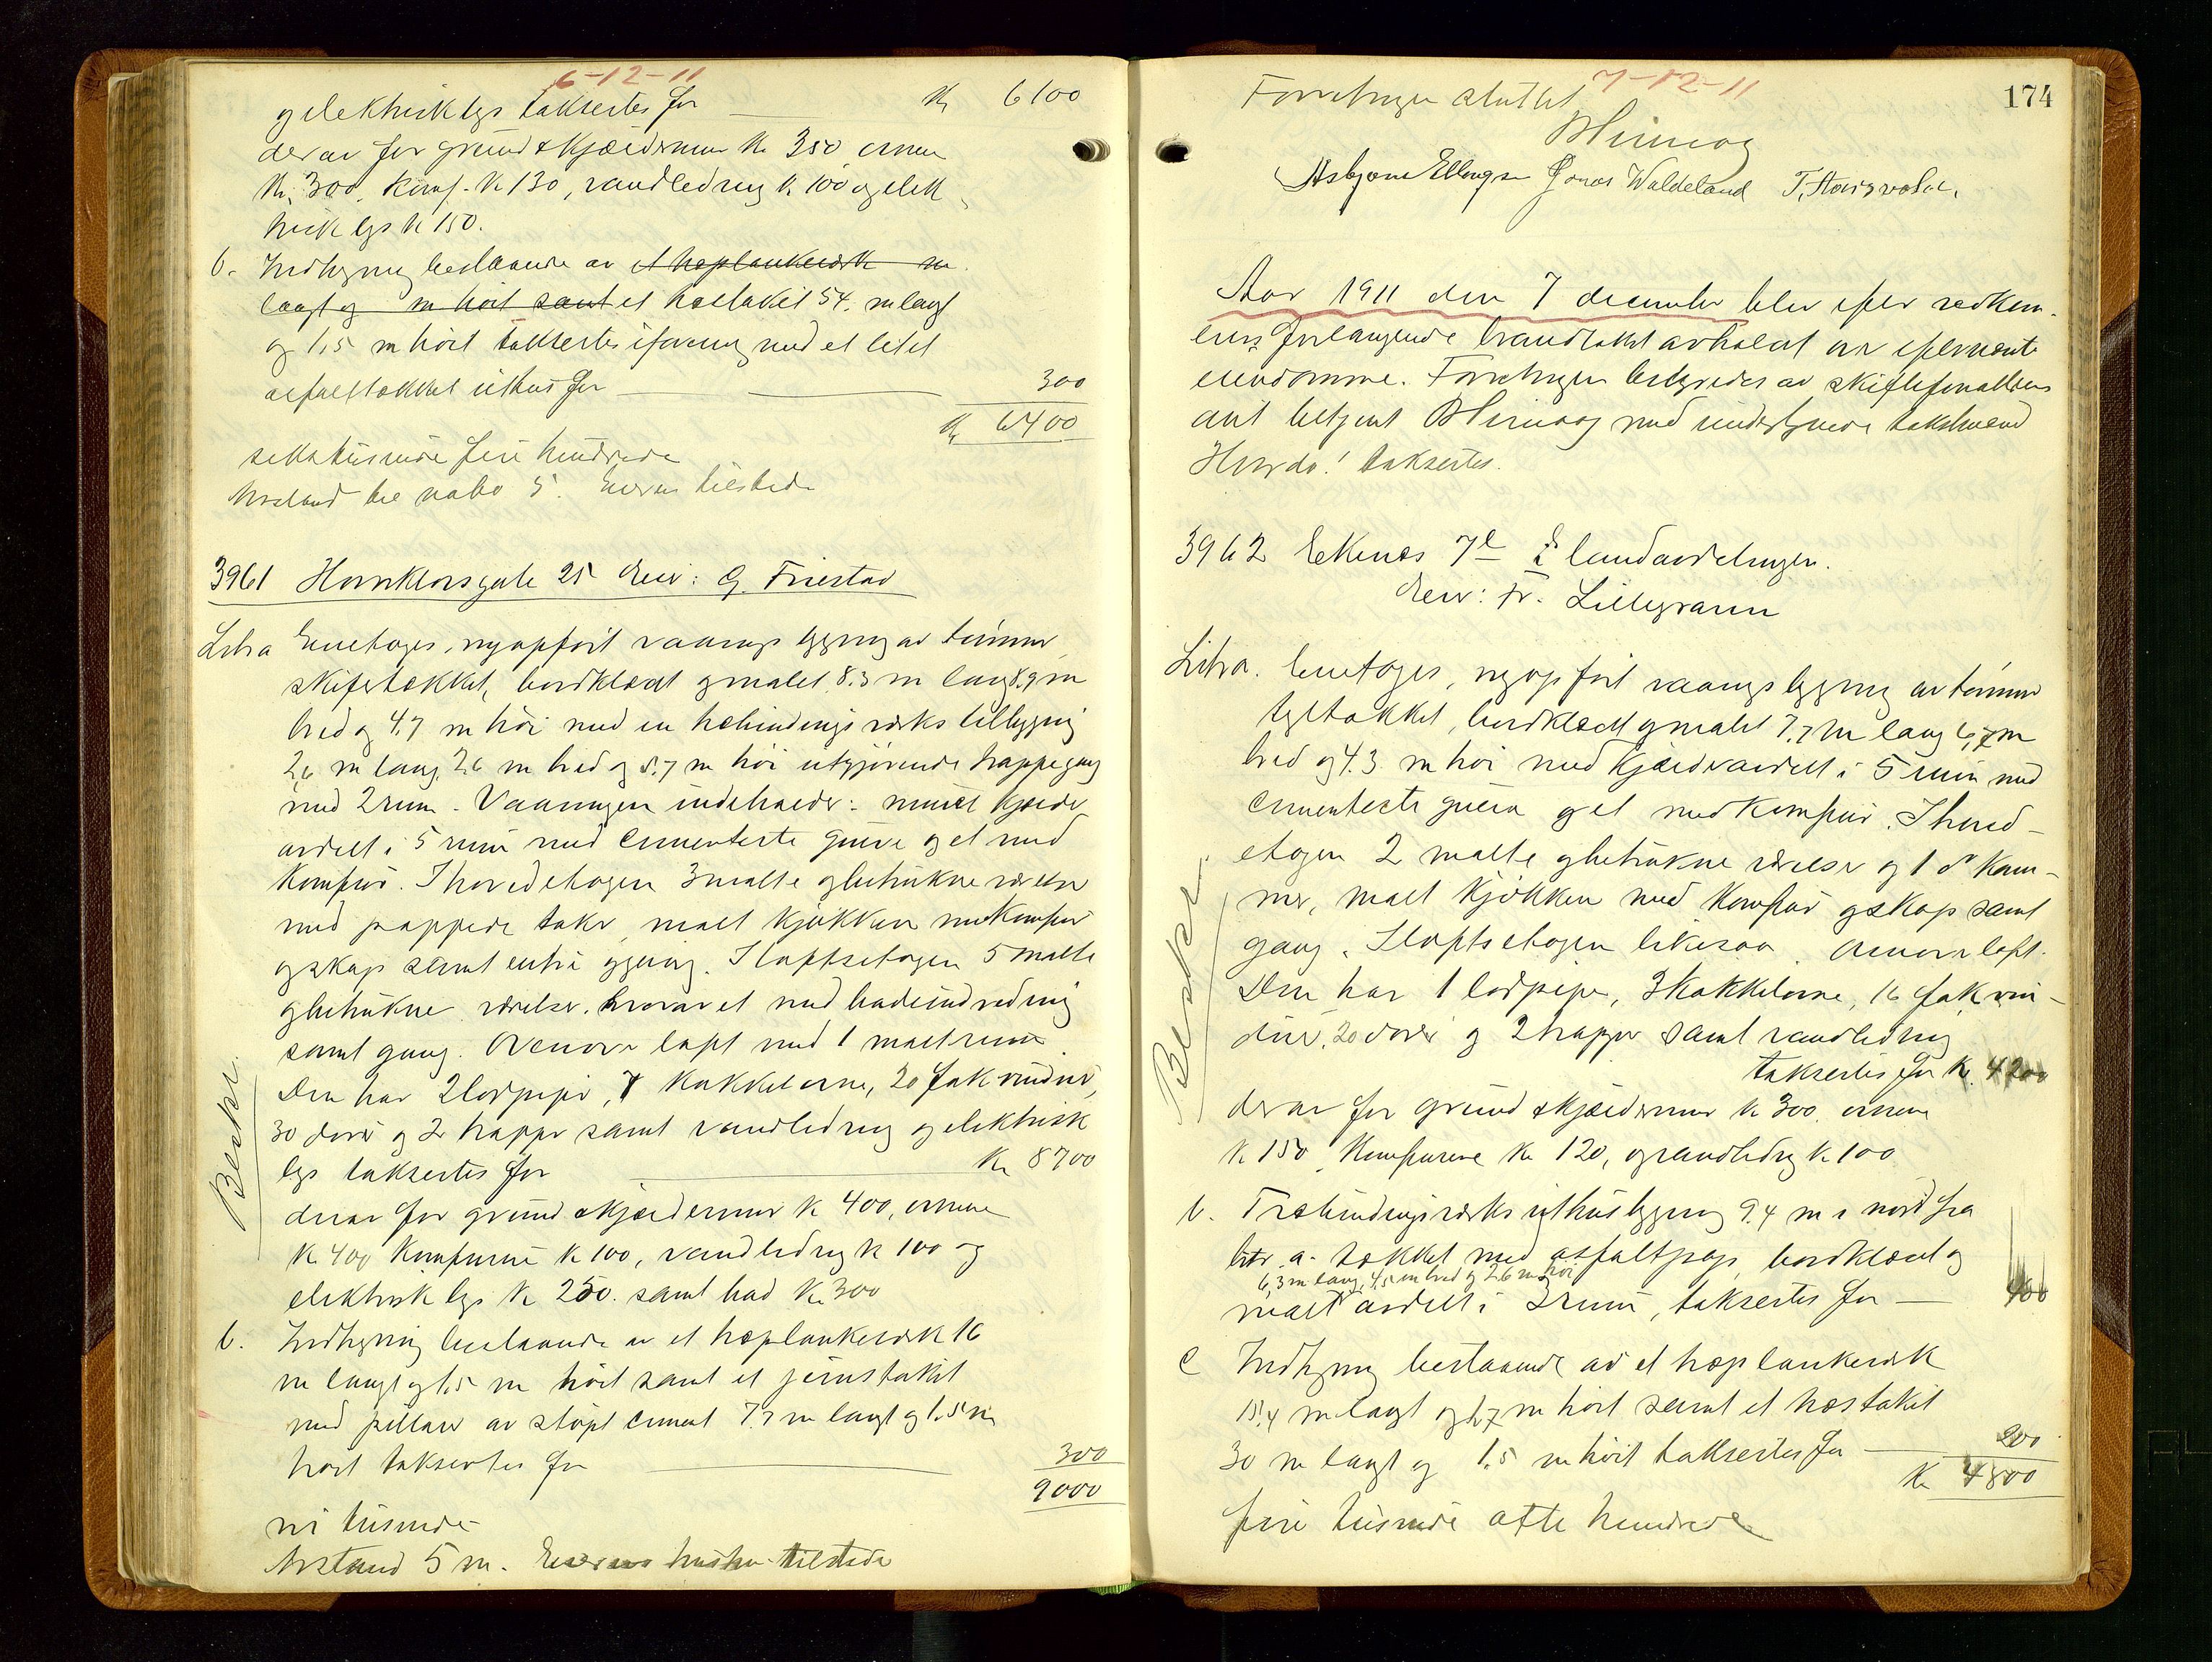 6-12-11
og elektrisk lys taksertes for Kr 6100
derav for grund & kjældermur Kr 350, ovnene
Kr 300, komf. Kr 130, vandledning Kr 100 og elek
trisk lys Kr 150.
b. Indhegning bestaaende av et træplankeværk m
langt og m høit samt et træstakit 54. m langt
og 1,5 m høit taksertes iforening med et litet
asfalttækket uthus for 300
Kr 6400
sekstusinde fire hundrede
Avstand til nabo 5. Eieren tilstede
3961 Hornklovsgate 25 Eier: G. Friestad
Litra Enetages, nyopført vaanings bygning av tømmer
skifertækket, bordklædt og malet 8.3 m lang 8.9 m
bred og 4.7 m høi med en træbindings værks tilbygning
2,6 m lang, 2.6 m bred og 5.7 m høi utgjørende trappegang
med 2 rum. Vaaningen indeholder: muret kjælder
avdelt i 5 rum med cementerte gulve og et med
Komfur. I hovedetagen 3 malte og betrukne værelser
med pappede take, malt kjøkken med komfur
og skap samt entre og gang. I loftsetagen 5 malte
og betrukne værelser, hvorav et med badeindredning
samt gang. Ovenover loft med 1 malt rum.
Den har 2 lodpiper, 7 kakkelovne, 20 fak vinduer,
30 dører og 2 trapper samt vandledning og elektrisk
lys taksertes for Kr 8700
derav for grund & kjældermur Kr 400, ovnene
Kr 400 Komfurene Kr 100, vandledning Kr 100 og
elektrisk lys Kr 250. samt bad Kr 300
b. Indhegning bestaaende av et træplankeværk 16
m langt og 1,5 m høit samt et jernstakit
med pillarer av støpt cement 7.7 m langt og 1.5 m
høit taksertes for 300
9000
ni tusinde
Avstand 5 m. Eierens hustru tilstede
Beskr.
7-12-11
174
Forretningen sluttet
Asbjørn Ellingsen Jonas Waldeland
Aar 1911 den 7 december blev efter vedkom-
mens forlangende brandtakst avholdt over efternævnte
eiendomme. Forretningen bestyredes av skiftefuldmægtiens
aut betjent med undertegnede takstmænd
Hvorda! taksertes.
3962 Eikenes 7 e landavdelingen.
Eier: Fr. Lillegraven
Litra. Enetages, nyopført vaaningsbygning av tømmer
tegltækket, bordklædt og malet 7.7 m lang 6,7 m
bred og 4.3 m høi med kjælder avdelt i 5 rum med
cementerte gulve og et med komfur. I hoved-
etagen 2 malte og betrukne værelser og 1 do kam-
mer, malt kjøkken med komfur og skap samt
gang. I loftsetagen likesaa. Ovenover loft.
Den har 1 lodpipe, 3 kakkelovne, 16 fak vin-
duer, 20 dører og 2 trapper samt vandledning
taksertes for Kr. 4200
derav for grund & kjældermur Kr 300. ovnene
Kr 150, Komfurene Kr 120, og vandledning Kr 100
b. Træbindingsværks uthusbygning 9.4 m i nord fra
litr. a. tækket med asfaltpap, bordklædt og
6,3 m lang, 4,5 m bred og 2.6 m høi
malt avdelt i 3 rum, taksertes for 400
c Indhegning bestaaende av et træplankeværk
15,4 m langt og 1,7 m høit samt et træstakit
30 m langt og 1.5 m høit taksertes for 200
Kr 4800
fire tusinde otte hundrede
Beskr.